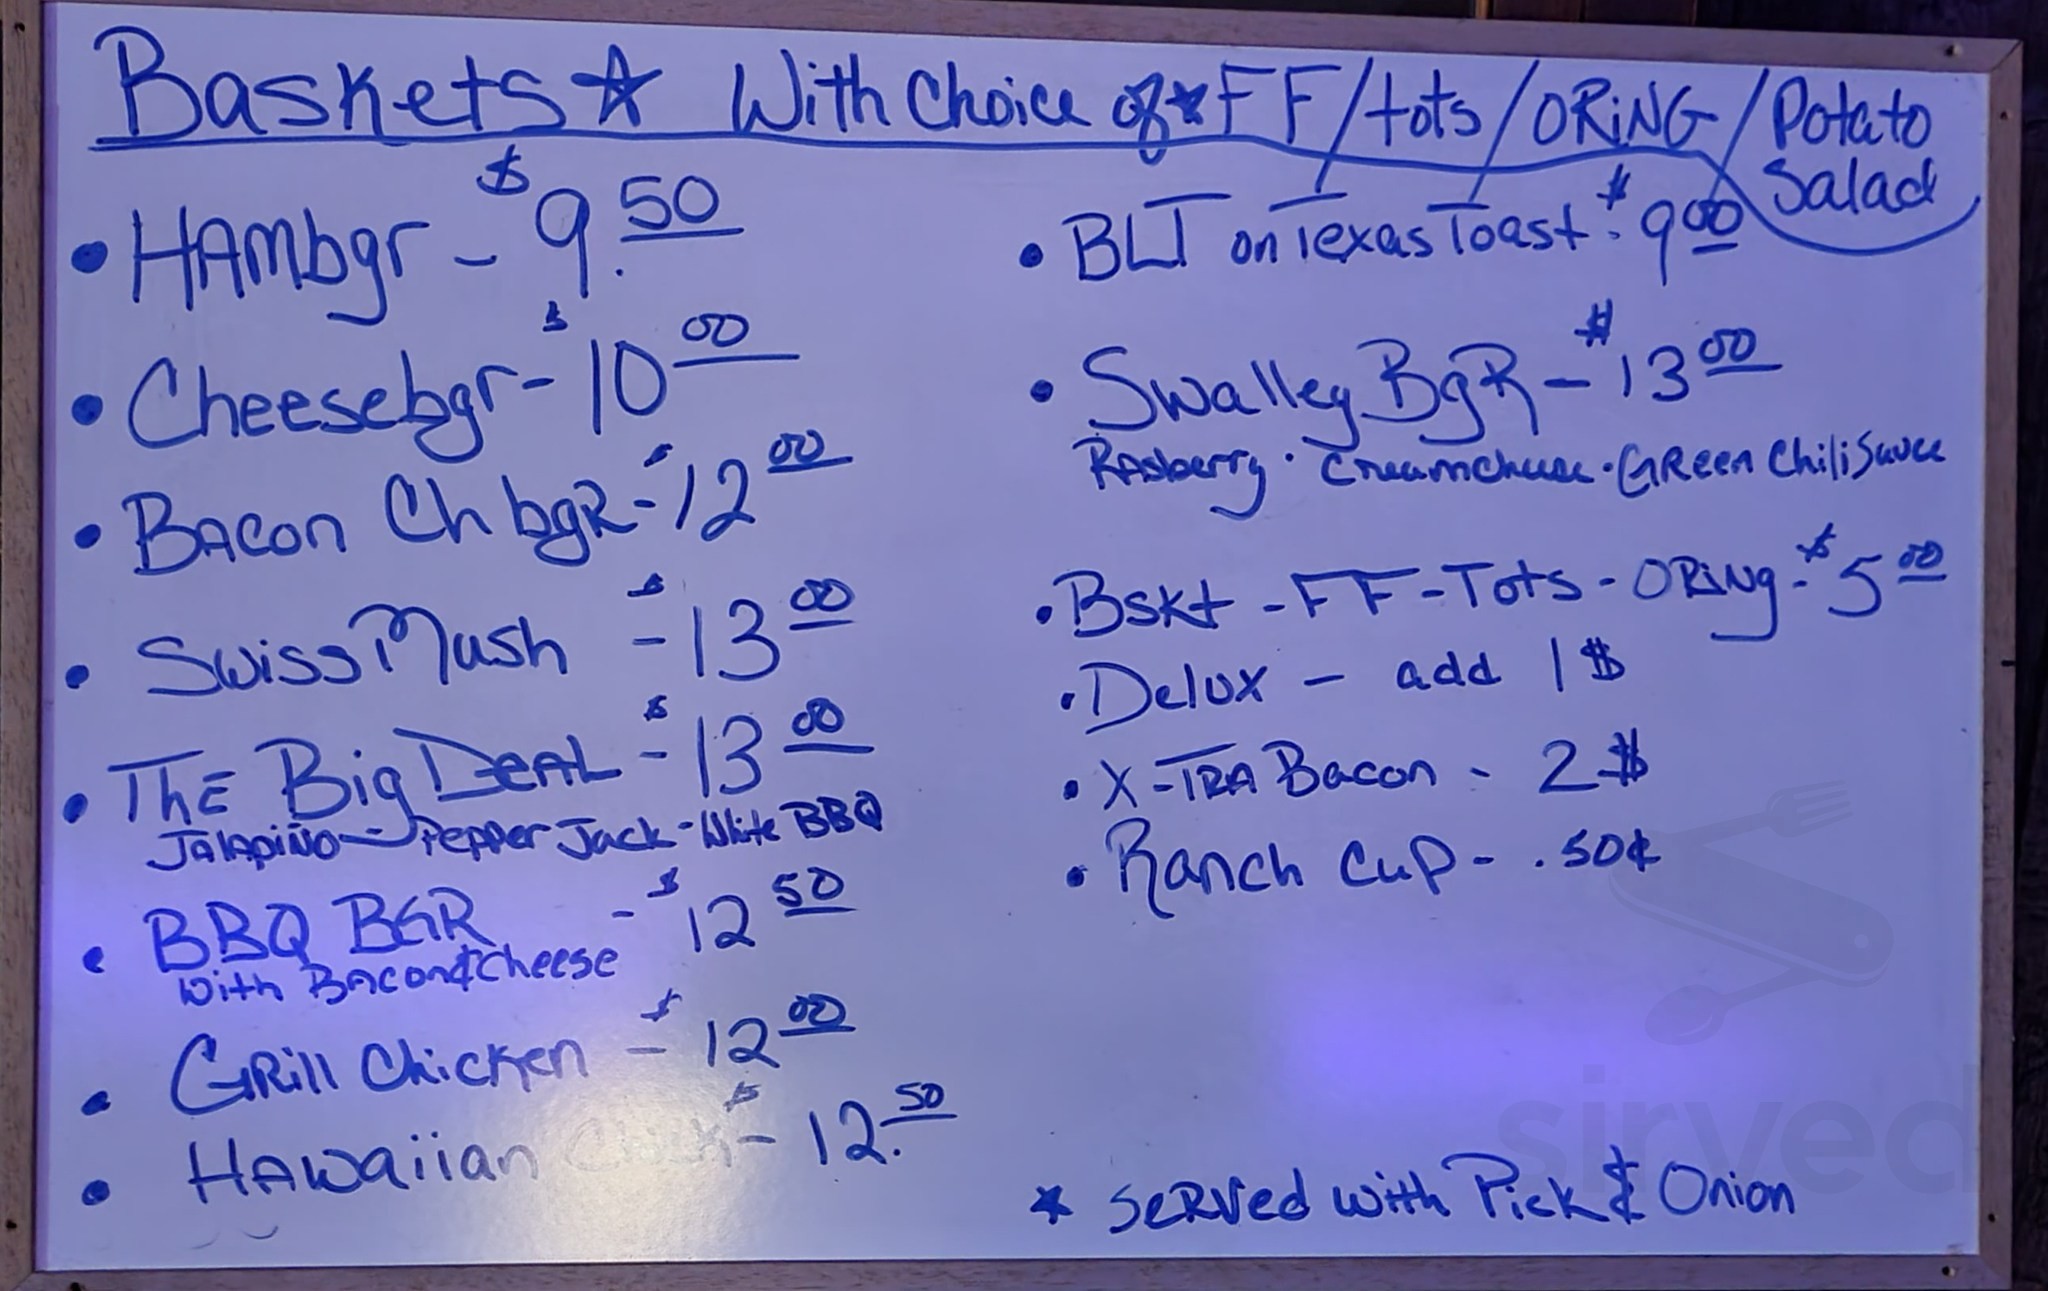 Baskets☆ With Choice of ★ FF/tots/ORiNG/Potato Salad
• HAMbgr - $9.50
• Cheesebgr - $10 00
• BACon Ch bgR - $12 00
• Swiss Mush - $13 00
• ThE Big DeAL - $13 00
JALApiÑo - Pepper Jack - White BBQ
• BBQ BGR - $12 50
with BACon & Cheese
• GRill Chicken - $12 00
• HAwaiian Chick - $12.50
• BLT on Texas Toast . $9 00
• Swalley BgR - $13 00
RAsberry • Creamcheese • GReen Chili Sauce
• Bskt - FF - Tots - ORiNg - $5 00
• Delux - add 1$
• X-TRA Bacon - 2$
• Ranch Cup - .50¢
★ SeRVed with Pick & Onion
sirved